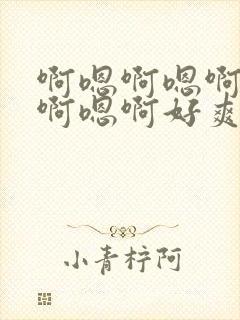 啊嗯啊嗯啊
啊嗯啊好爽
小青梓阿